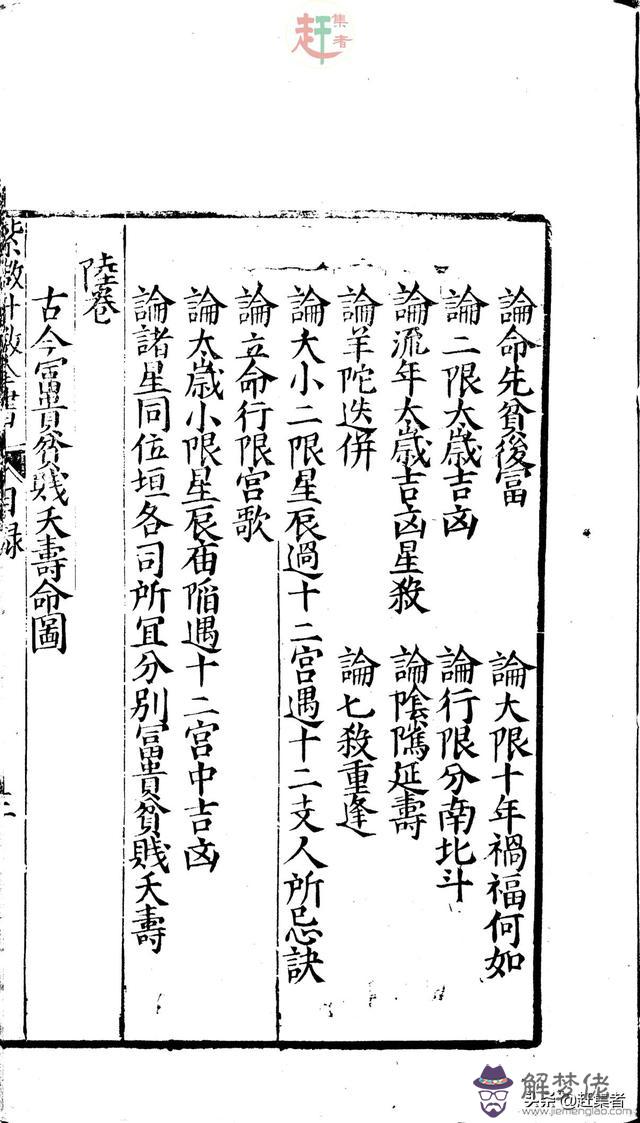 赶集者
論命先貧後富 論大限十年禍福何如
論二限太歲吉凶 論行限分南北斗
論流年太歲吉凶星殺 論陰隲延壽
論羊陀迭併 論七殺重逢
論大小二限星辰過十二宮遇十二支人所忌訣
論立命行限宮歌
論太歲小限星辰庙陷遇十二宮中吉凶
論諸星同位垣各司所冝分別富貴貧賤夭壽
陸卷
古今富貴貧賤夭壽命圖
目錄
解梦佬
头条@赶集者
www.jiemenglao.com